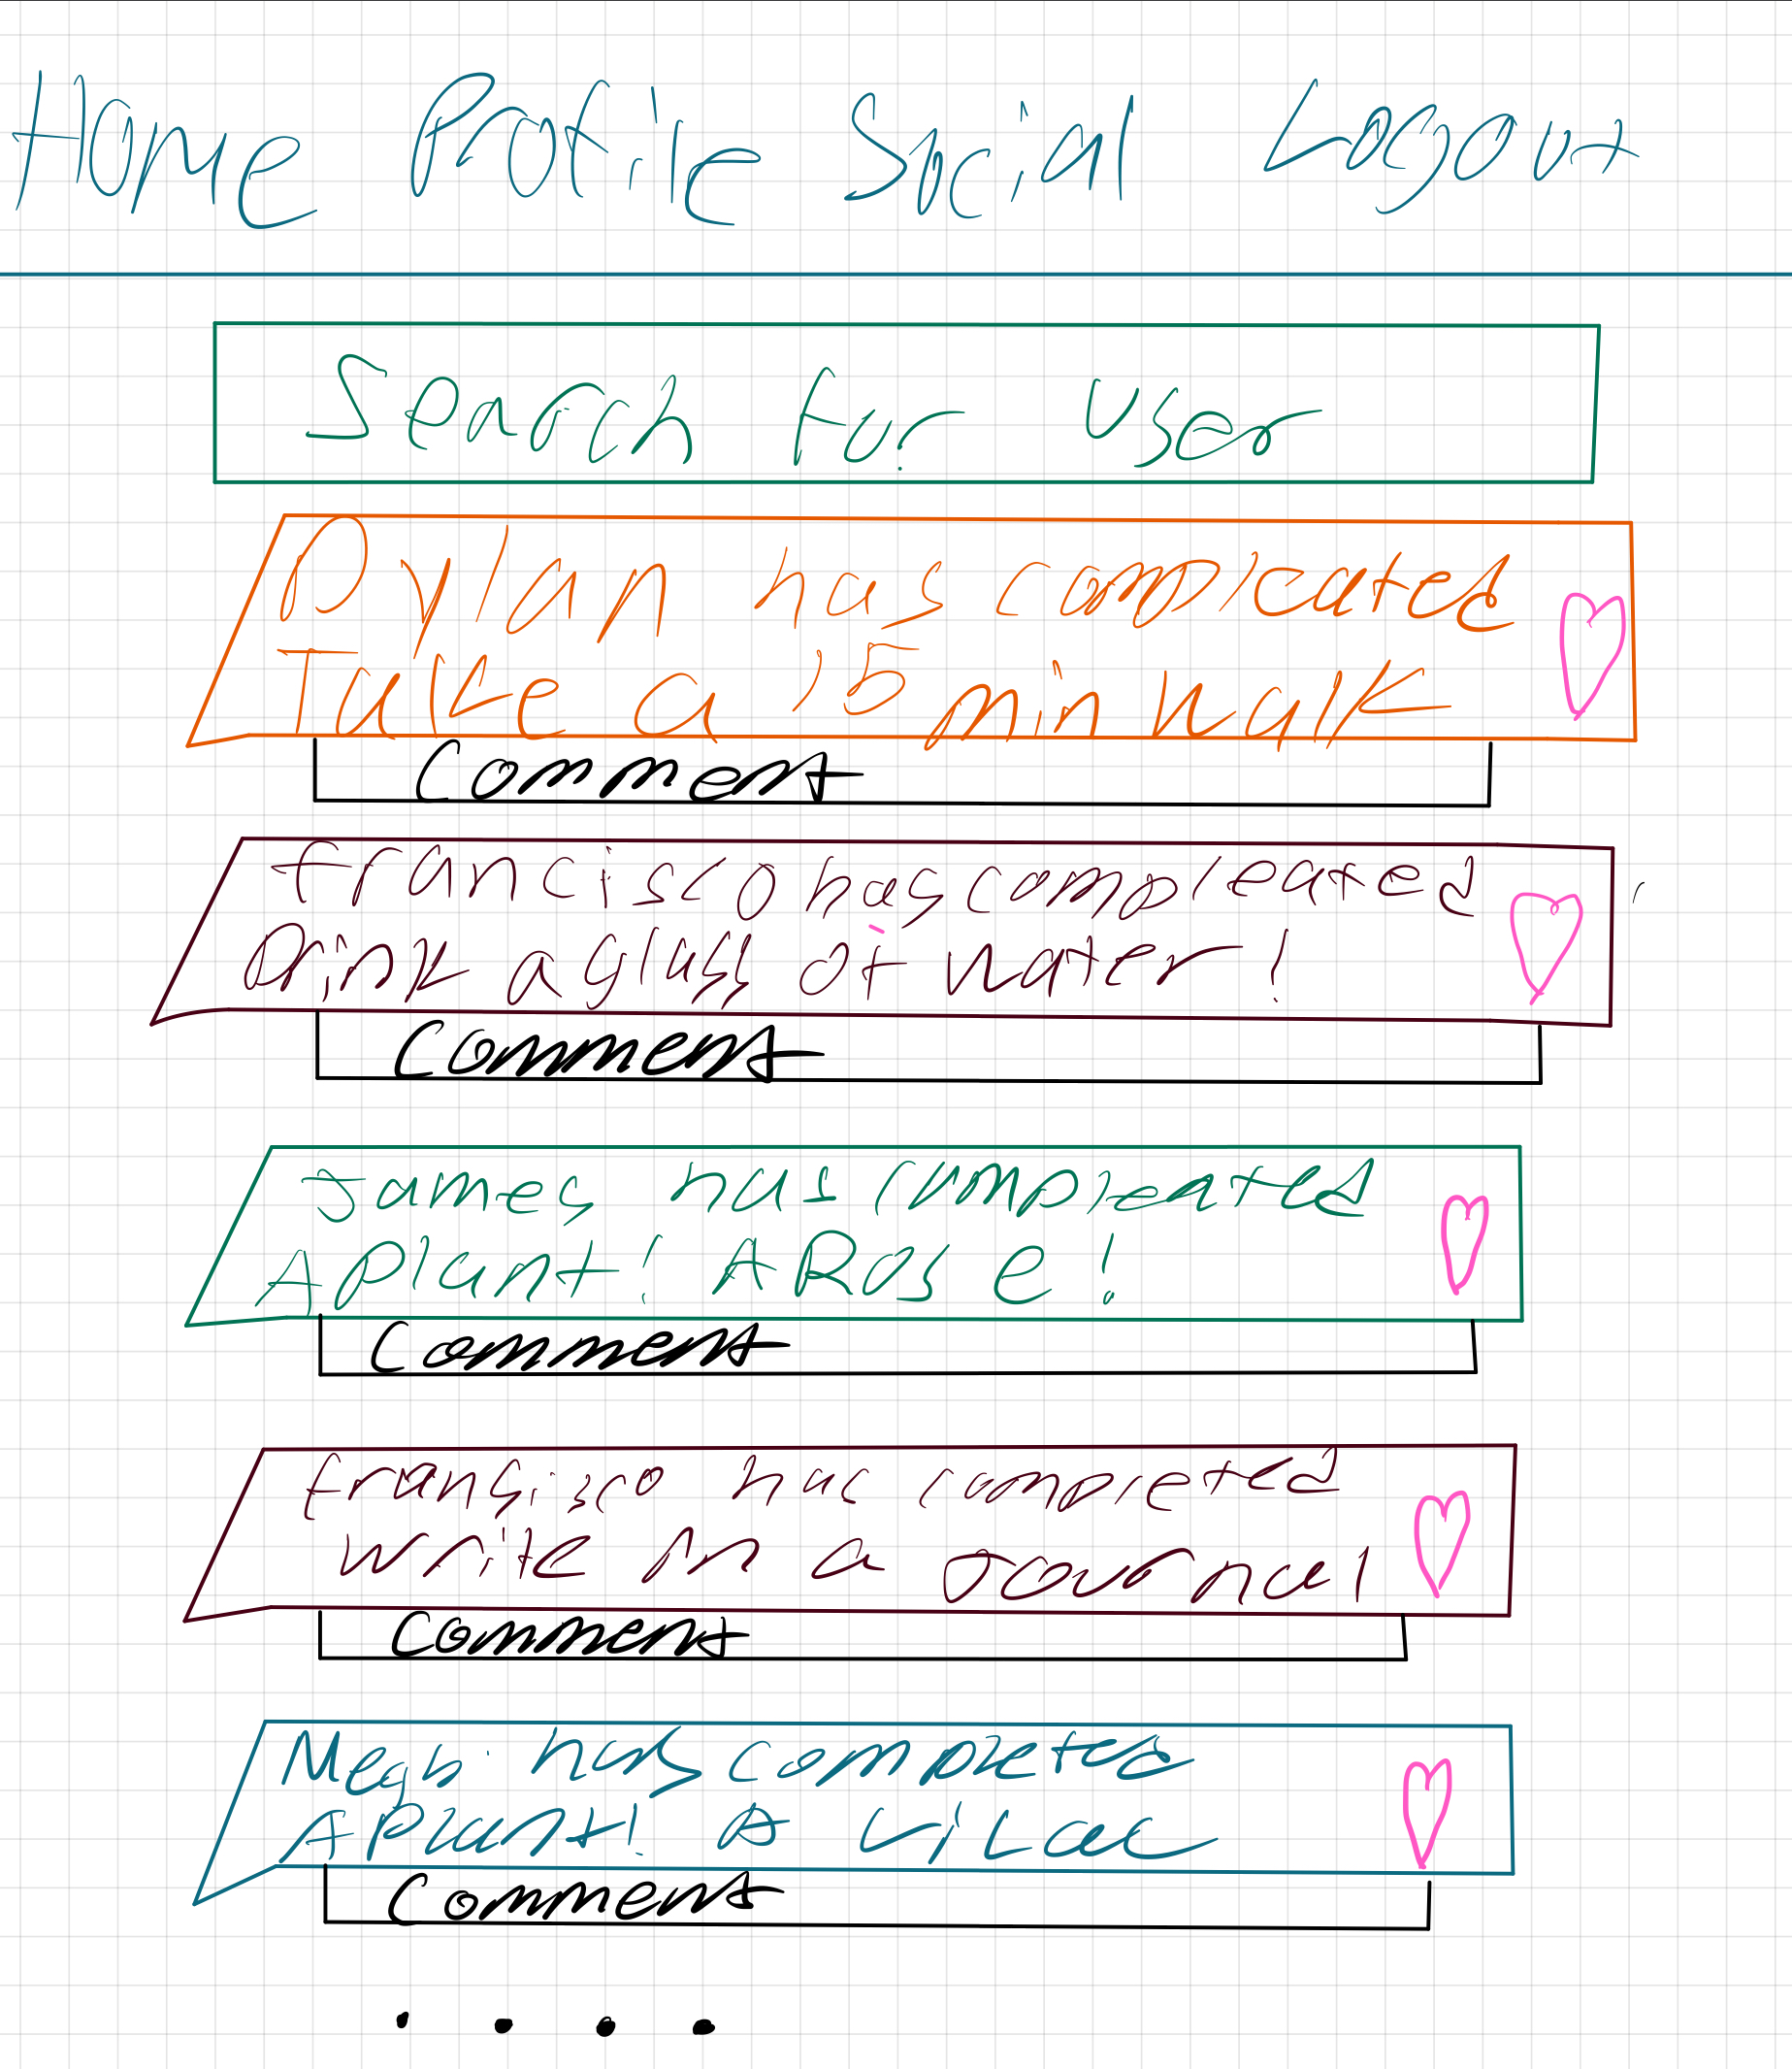 Home Profile Social Logout
Search for User
Dylan has completed
Take a 15 min walk
Comment
francisco has compleated
Drink a glass of water!
Comment
James has compleated
A Plant! A Rose!
Comment
francisco has completed
write in a Journal
Comment
has completed
A Plant! A LiLac
Comment